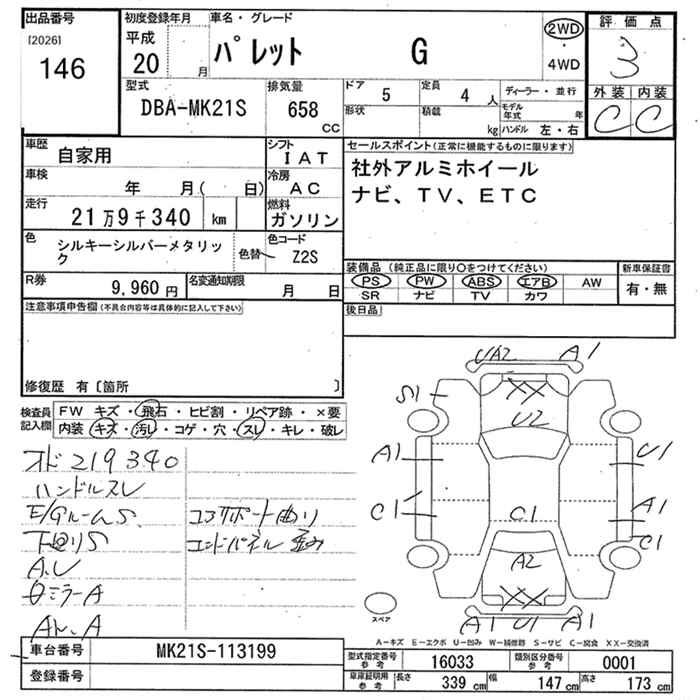 出品番号
[2026]
146
初度登録年月
平成
20 月
車名・グレード
パレット G
2WD
・
4WD
評価点
3
外装 内装
C C
型式
DBA-MK21S
排気量
658
CC
ドア 5
定員 4 人
形状
積載 kg
ディーラー・並行
モデル年式 年
ハンドル 左・右
車歴
自家用
シフト
IAT
車検
年 月( 日)
冷房
AC
走行
21万9千340 km
燃料
ガソリン
色
シルキーシルバーメタリック
色替
色コード
Z2S
R券
9,960 円
名変通知期限
月 日
セールスポイント(正常に機能するものに限ります)
社外アルミホイール
ナビ、TV、ETC
装備品 (純正品に限り○をつけてください)
PS PW ABS エアB AW
SR ナビ TV カワ
新車保証書
有・無
後日品
注意事項申告欄(不具合内容等は具体的に記入して下さい)
修復歴 有〔箇所 〕
検査員記入欄
FW キズ・飛石・ヒビ割・リペア跡・×要
内装・キズ・汚レ・コゲ・穴・スレ・キレ・破レ
オド 219340
ハンドルスレ
E/GルームS
下廻りS
コアサポート曲り
エンドパネル歪み
ミラーA
UA2 A1
XX
S1
U2
A1 U1
C1 A1
C1 C1
A2
XX
A1 U1 A1
スペア
A-キズ E-エクボ U-凹み W-補修跡 S-サビ C-腐食 XX-交換済
車台番号
MK21S-113199
登録番号
型式指定番号 参考 16033
類別区分番号 参考 0001
車庫証明用 参考 長さ 339 cm 幅 147 cm 高さ 173 cm